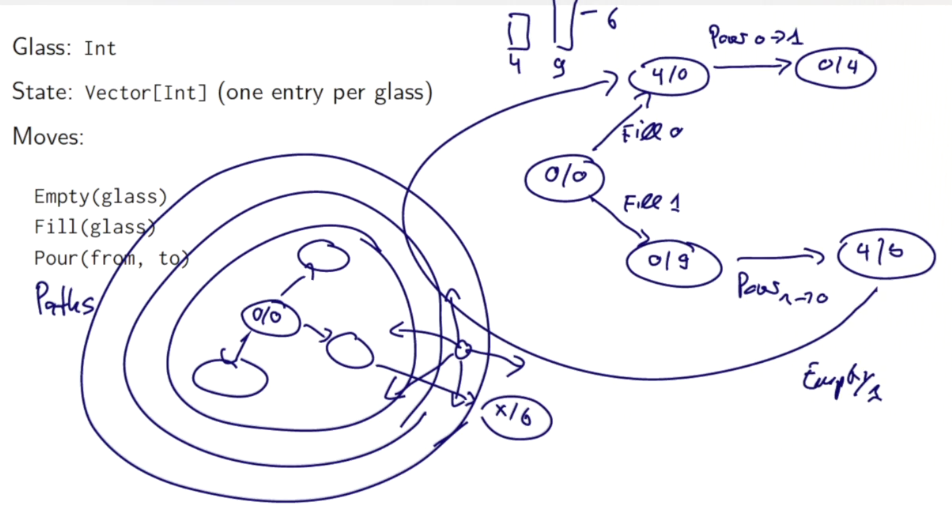 Glass: Int
State: Vector[Int] (one entry per glass)
Moves:
Empty(glass)
Fill(glass)
Pour(from, to)
Paths
4
9
6
4/0
Pour 0→1
0/4
Fill 0
0/0
Fill 1
0/9
Pour 1→0
4/6
Empty 1
0/0
x/6